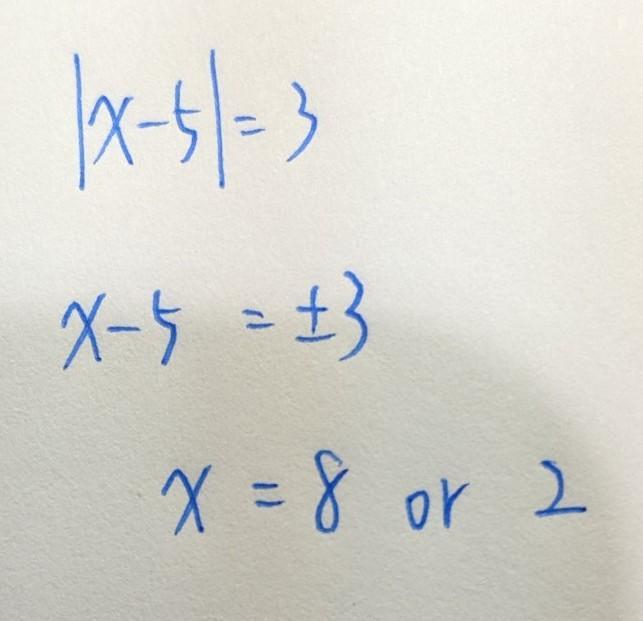 |x-5|= 3
x-5 = ±3
x = 8 or 2